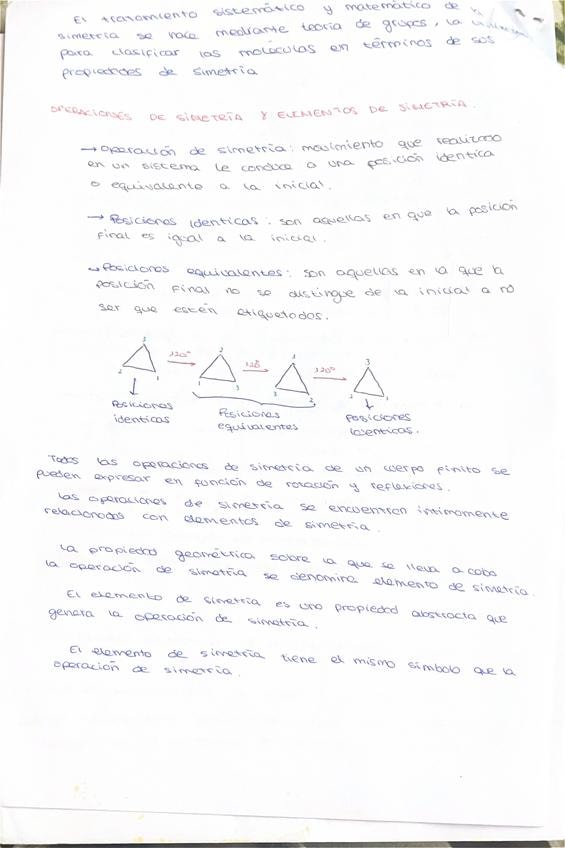 El tratamiento sistemático y matemático de la
simetría se hace mediante teoría de grupos, la
para clasificar las moléculas en términos de sus
propiedades de simetría
OPERACIONES DE SIMETRÍA Y ELEMENTOS DE SIMETRÍA.
→ Operación de simetría: movimiento que realizado
en un sistema le conduce a una posición identica
o equivalente a la inicial.
→ Posiciones identicas: son aquellas en que la posición
final es igual a la inicial.
→ Posiciones equivalentes: son aquellas en la que la
posición final no se distingue de la inicial a no
ser que estén etiquetados.
3 2 1 120° 2 1 3 120° 1 3 2 120° 3 2 1
Posiciones identicas
Posiciones equivalentes
Posiciones identicas.
Todas las operaciones de simetría de un cuerpo finito se
pueden expresar en función de rotación y reflexiones.
Las operaciones de simetría se encuentran intimamente
relacionadas con elementos de simetría.
La propiedad geométrica sobre la que se lleva a cabo
la operación de simetría se denomina elemento de simetría.
El elemento de simetría es una propiedad abstracta que
genera la operación de simetría.
El elemento de simetría tiene el mismo símbolo que la
operación de simetría.